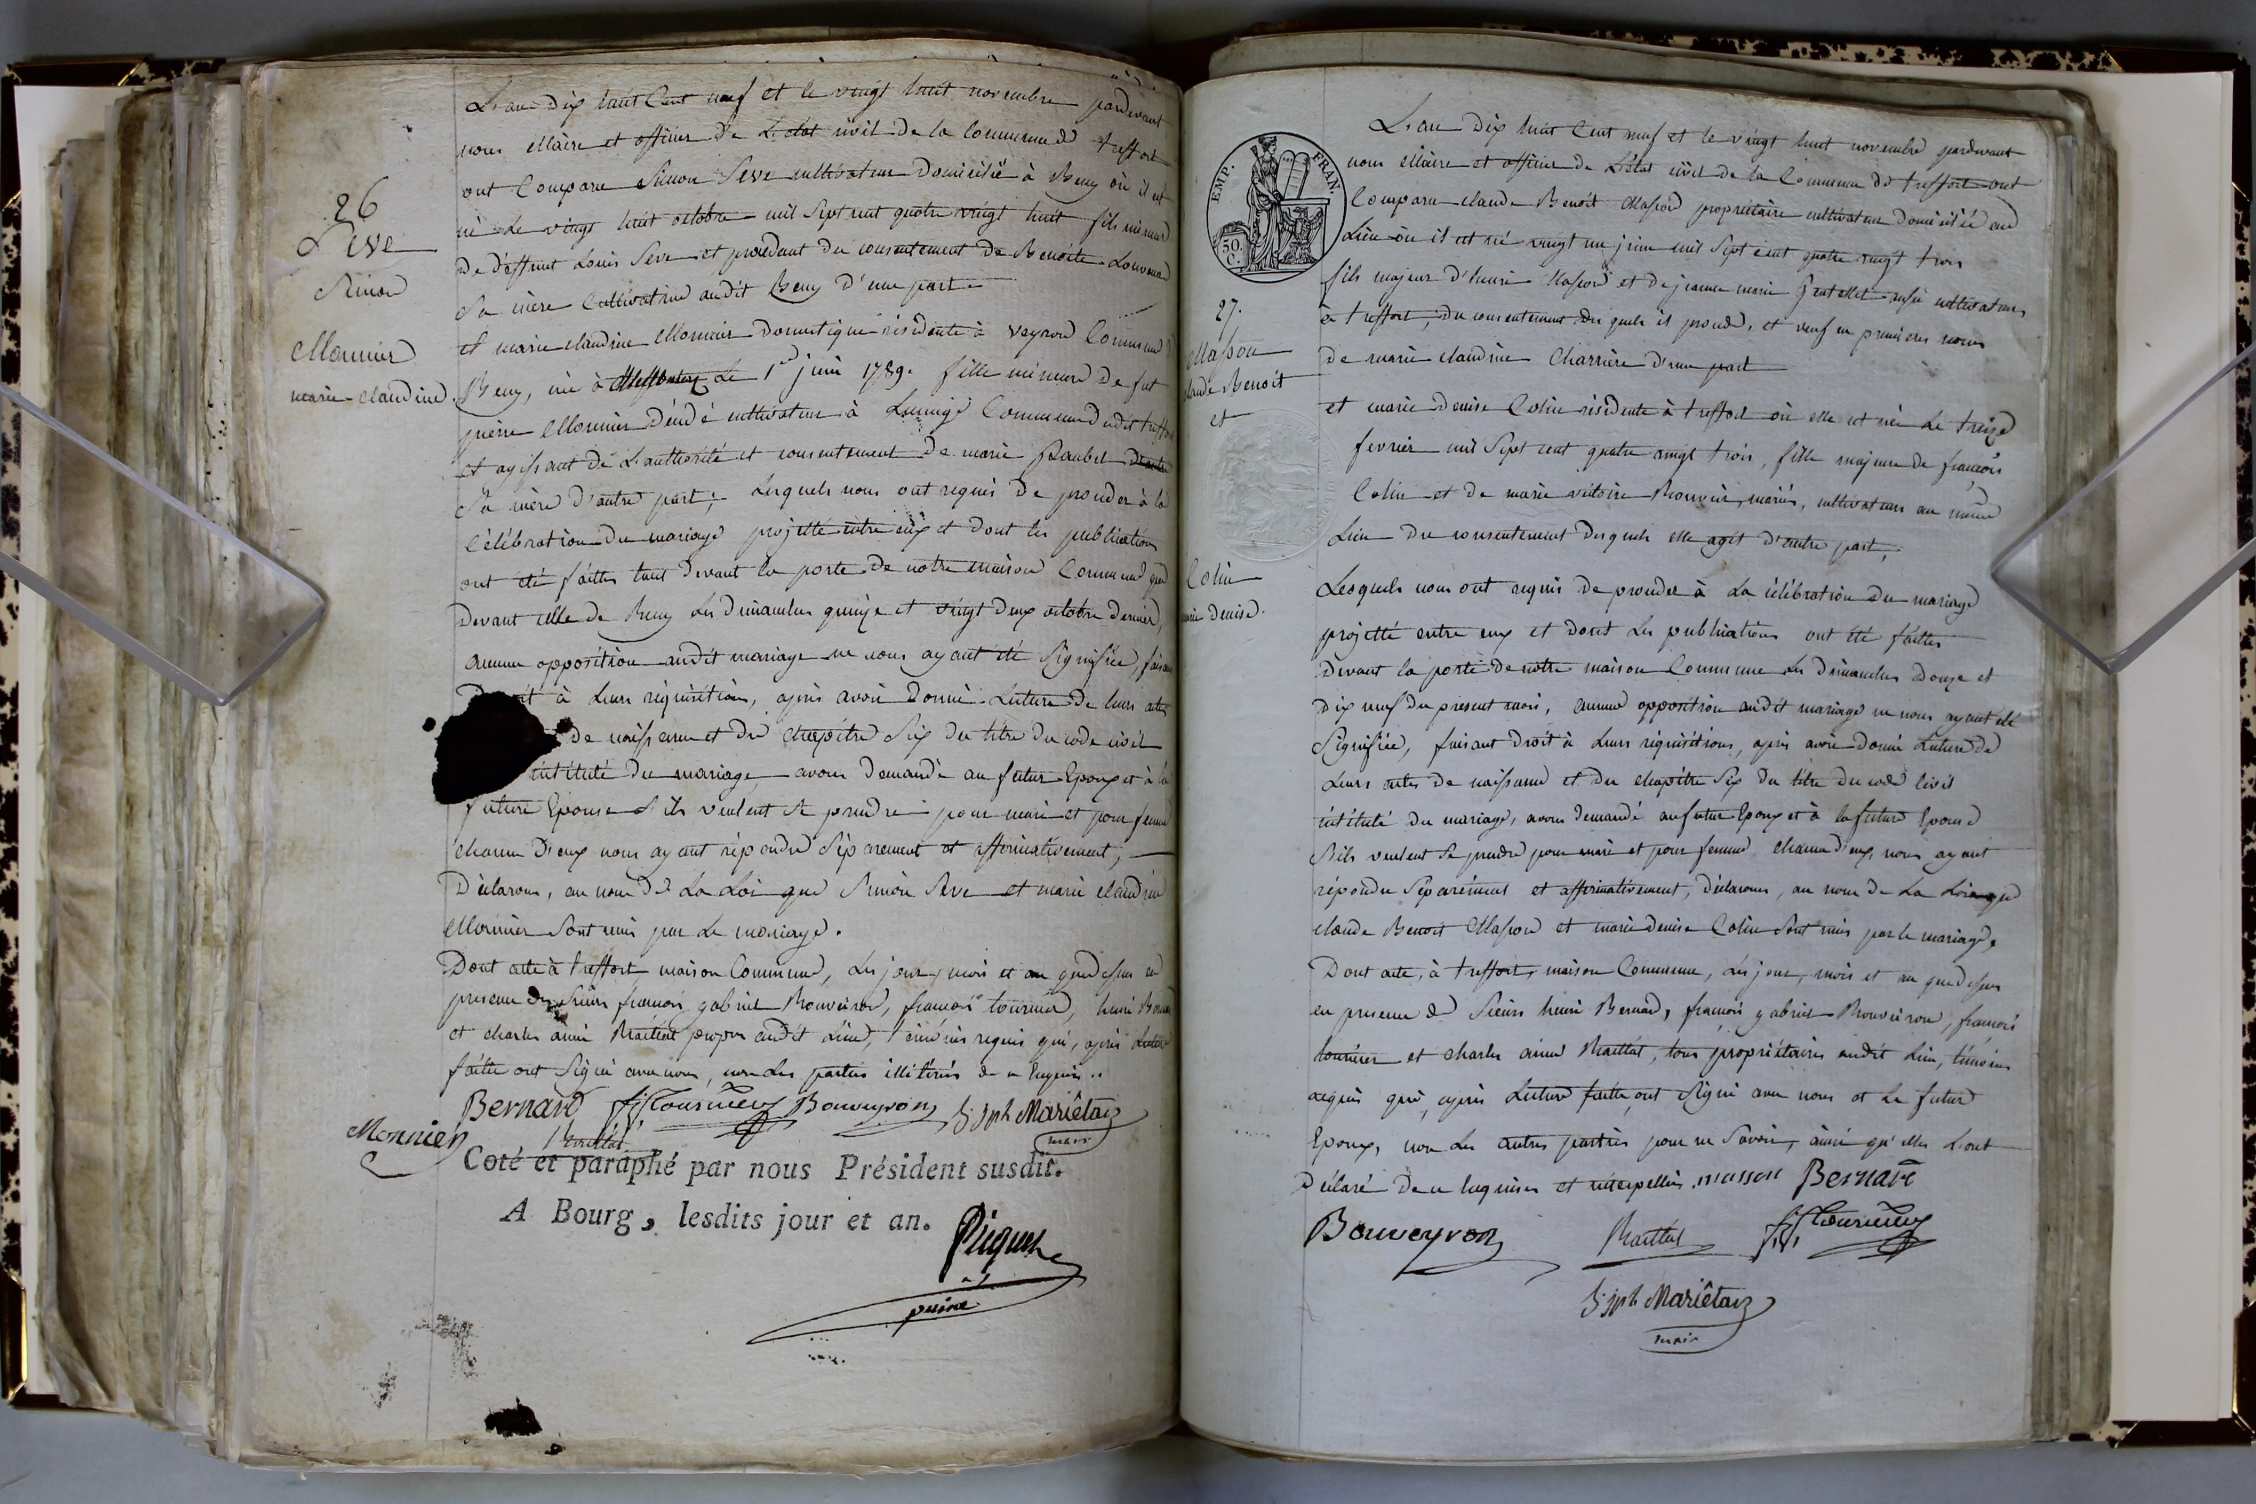 26
Seve
Simon
Monnier
marie claudine.
L'an dix huit Cent neuf et le vingt huit novembre pardevant
nous Maire et officier de L'etat civil de la Commune de treffort
ont Comparu Simon Seve cultivateur Domicilié à Beny où il est
né Le vingt huit octobre mil Sept cent quatre vingt huit fils mineur
De deffunt Louis Seve et procedant du consentement de Benoite
Sa mère Cultivatrice audit Beny d'une part
et marie claudine Monnier Domestique résidente à veyron Commune
Beny, née à Le 1er juin 1789. fille mineure de fut
pierre Monnier décédé cultivateur à Commune dudit treffort
et agissant de L'authorité et consentement de marie
Sa mère d'autre part; Lesquels nous ont requis de proceder à la
Célébration du mariage projetté entre eux et dont les publications
ont été faittes tant Devant la porte de notre maison Commune que
Devant celle de Beny Les Dimanches quinze et vingt deux octobre dernier,
aucune opposition audit mariage ne nous ayant été Signifiée, faisant
Droit à Leurs réquisitions, après avoir Donné Lecture de leurs actes
de naissance et du chapitre Six du titre du code civil
intitulé du mariage avons demandé au futur Epoux et à la
future Epouse S'ils veulent se prendre pour mari et pour femme
chacun D'eux nous ayant répondu Séparement et affirmativement,
Déclarons, au nom de La Loi que Simon Seve et marie claudine
Monnier Sont unis par Le mariage.
Dont acte à treffort maison Commune, Les jour, mois et an que dessus en
presence des Srieurs françois gabriel Bouveiron, françois tournier, henri Bernard
et charles aimé Maillat propres audit Lieu, témoins requis qui, après Lecture
faitte ont Signé avec nous, non Les parties illitérés de ce Enquis..
Bernard Tournier Bouveyron Jph Mariëtaz
Monnier Maillat maire
Coté et paraphé par nous Président susdit.
A Bourg, lesdits jour et an.
EMP. FRAN.
50. C.
27.
Masson
claude Benoit
et
Colin
marie denise.
L'an Dix huit Cent neuf et le vingt huit novembre pardevant
nous Maire et officier de L'état civil de la Commune de treffort ont
Comparu claude Benoit Masson propriétaire cultivateur domicilié aud
Lieu où il est né vingt un juin mil Sept cent quatre vingt trois
fils majeur d'henri Masson et de jeanne marie cultivateurs
à treffort, du consentement des quels il procede, et veuf en premieres noces
de marie claudine Charrière d'une part
et marie denise Colin résidente à treffort où elle est née Le treize
fevrier mil Sept cent quatre vingt trois, fille majeure de françois
Colin et de marie victoire Bouveir, mariés, cultivateurs au même
Lieu du consentement desquels elle agit d'autre part,
Lesquels nous ont requis de proceder à La célébration du mariage
projetté entre eux et dont les publications ont été faittes
Devant la porte de notre maison Commune Les Dimanches Douze et
Dix neuf du présent mois, aucune opposition audit mariage ne nous ayant été
Signifiée, faisant Droit à Leurs réquisitions, après avoir donné Lecture de
Leurs actes de naissance et du chapitre Six du titre du code Civil
intitulé du mariage, avons demandé au futur Epoux et à la future Epouse
S'ils veulent Se prendre pour mari et pour femme chacun d'eux, nous ayant
répondu Séparément et affirmativement, déclarons, au nom de La Loi que
claude Benoit Masson et marie denise Colin Sont unis par le mariage,
Dont acte, à treffort, maison Commune, Les jour, mois et an que dessus
en presence de Sieurs henri Bernard, françois gabriel Bouveiron, françois
tournier et charles aimé Maillat, tous propriétaires audit Lieu, témoins
requis qui, après Lecture faitte, ont Signé avec nous et Le futur
Epoux, non Les autres parties pour ne Savoir, ainsi qu'elles L'ont
Déclaré De ce Enquises et interpellées. masson Bernard
Bouveyron Maillat Tournier
Jph Mariëtaz
maire